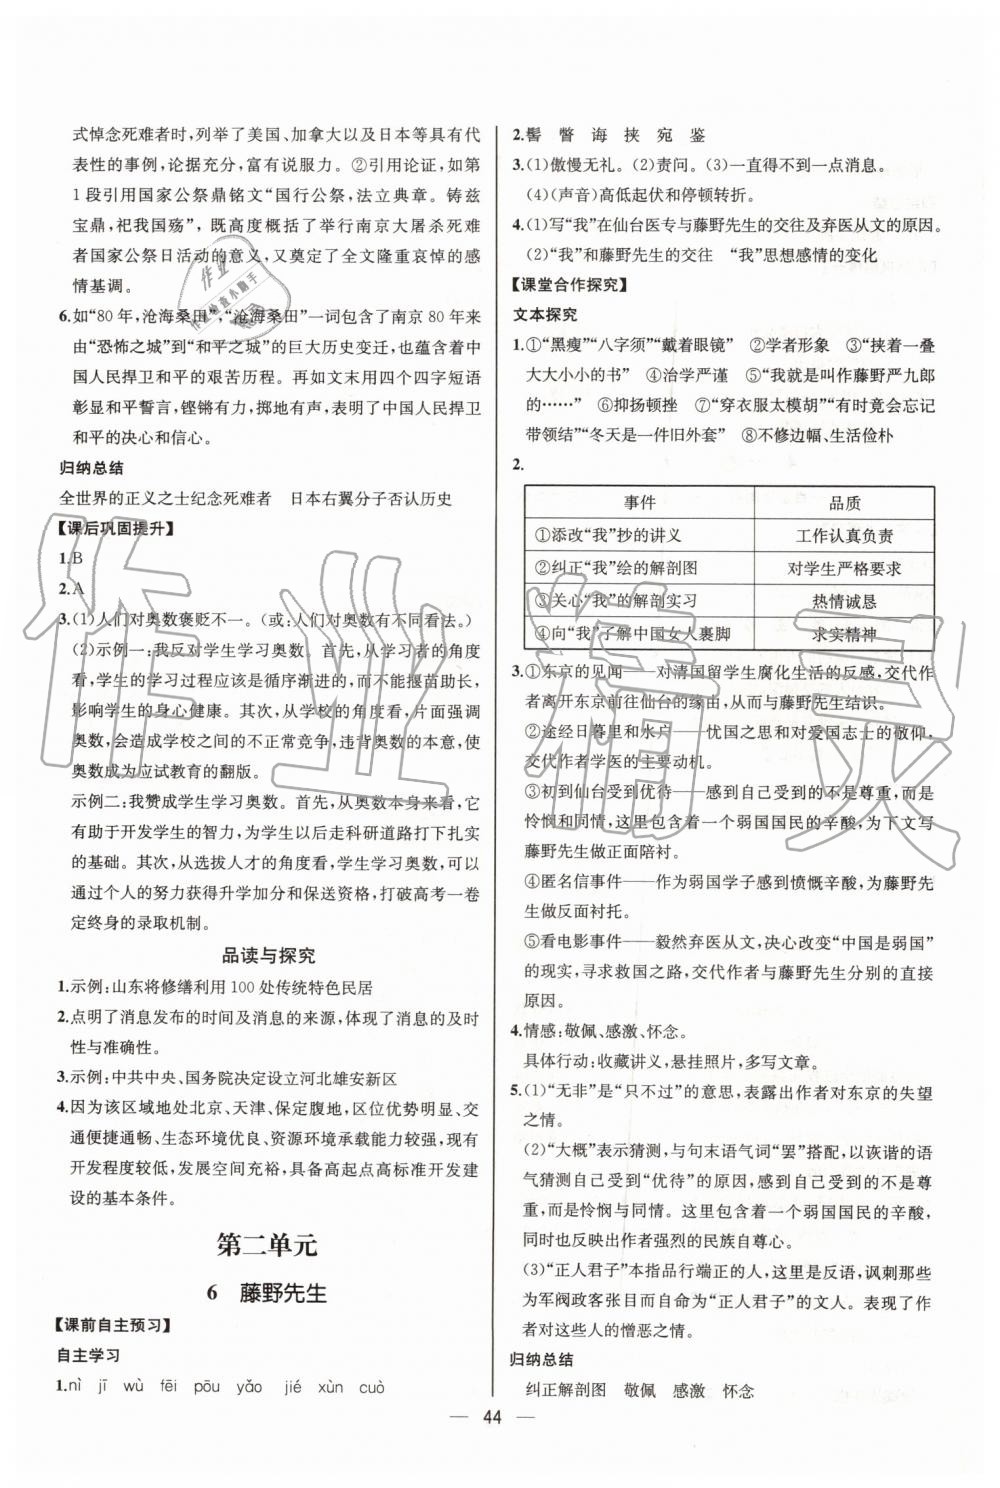 式悼念死难者时,列举了美国、加拿大以及日本等具有代
表性的事例,论据充分,富有说服力。②引用论证,如第
1段引用国家公祭鼎铭文“国行公祭,法立典章。铸兹
宝鼎,祀我国殇”,既高度概括了举行南京大屠杀死难
者国家公祭日活动的意义,又奠定了全文隆重哀悼的感
情基调。
6.如“80年,沧海桑田”,“沧海桑田”一词包含了南京80年来
由“恐怖之城”到“和平之城”的巨大历史变迁,也蕴含着中
国人民捍卫和平的艰苦历程。再如文末用四个四字短语
彰显和平誓言,铿锵有力,掷地有声,表明了中国人民捍卫
和平的决心和信心。
归纳总结
全世界的正义之士纪念死难者 日本右翼分子否认历史
【课后巩固提升】
1.B
2.A
3.(1)人们对奥数褒贬不一。(或:人们对奥数有不同看法。)
(2)示例一:我反对学生学习奥数。首先,从学习者的角度
看,学生的学习过程应该是循序渐进的,而不能揠苗助长,
影响学生的身心健康。其次,从学校的角度看,片面强调
奥数,会造成学校之间的不正常竞争,违背奥数的本意,使
奥数成为应试教育的翻版。
示例二:我赞成学生学习奥数。首先,从奥数本身来看,它
有助于开发学生的智力,为学生以后走科研道路打下扎实
的基础。其次,从选拔人才的角度看,学生学习奥数,可以
通过个人的努力获得升学加分和保送资格,打破高考一卷
定终身的录取机制。
品读与探究
1.示例:山东将修缮利用100处传统特色民居
2.点明了消息发布的时间及消息的来源,体现了消息的及时
性与准确性。
3.示例:中共中央、国务院决定设立河北雄安新区
4.因为该区域地处北京、天津、保定腹地,区位优势明显、交
通便捷通畅、生态环境优良、资源环境承载能力较强,现有
开发程度较低,发展空间充裕,具备高起点高标准开发建
设的基本条件。
第二单元
6 藤野先生
【课前自主预习】
自主学习
1.nì jī wù fēi pōu yǎo jié xùn cuò
2.髻 瞥 诲 挟 宛 鉴
3.(1)傲慢无礼。(2)责问。(3)一直得不到一点消息。
(4)(声音)高低起伏和停顿转折。
4.(1)写“我”在仙台医专与藤野先生的交往及弃医从文的原因。
(2)“我”和藤野先生的交往 “我”思想感情的变化
【课堂合作探究】
文本探究
1.①“黑瘦”“八字须”“戴着眼镜” ②学者形象 ③“挟着一叠
大大小小的书” ④治学严谨 ⑤“我就是叫作藤野严九郎
的……” ⑥抑扬顿挫 ⑦“穿衣服太模胡”“有时竟会忘记
带领结”“冬天是一件旧外套” ⑧不修边幅、生活俭朴
2.
事件 品质
①添改“我”抄的讲义 工作认真负责
②纠正“我”绘的解剖图 对学生严格要求
③关心“我”的解剖实习 热情诚恳
④向“我”了解中国女人裹脚 求实精神
3.①东京的见闻——对清国留学生腐化生活的反感,交代作
者离开东京前往仙台的缘由,从而与藤野先生结识。
②途经日暮里和水户——忧国之思和对爱国志士的敬仰,
交代作者学医的主要动机。
③初到仙台受到优待——感到自己受到的不是尊重,而是
怜悯和同情,这里包含着一个弱国国民的辛酸,为下文写
藤野先生做正面陪衬。
④匿名信事件——作为弱国学子感到愤慨辛酸,为藤野先
生做反面衬托。
⑤看电影事件——毅然弃医从文,决心改变“中国是弱国”
的现实,寻求救国之路,交代作者与藤野先生分别的直接
原因。
4.情感:敬佩、感激、怀念。
具体行动:收藏讲义,悬挂照片,多写文章。
5.(1)“无非”是“只不过”的意思,表露出作者对东京的失望
之情。
(2)“大概”表示猜测,与句末语气词“罢”搭配,以诙谐的语
气猜测自己受到“优待”的原因,自己受到的并不是尊
重,而是怜悯与同情。这里包含着一个弱国国民的辛酸,
同时也反映出作者强烈的民族自尊心。
(3)“正人君子”本指品行端正的人,这里是反语,讽刺那些
为军阀政客张目而自命为“正人君子”的文人。表现了作
者对这些人的憎恶之情。
归纳总结
纠正解剖图 敬佩 感激 怀念
— 44 —
作业精灵